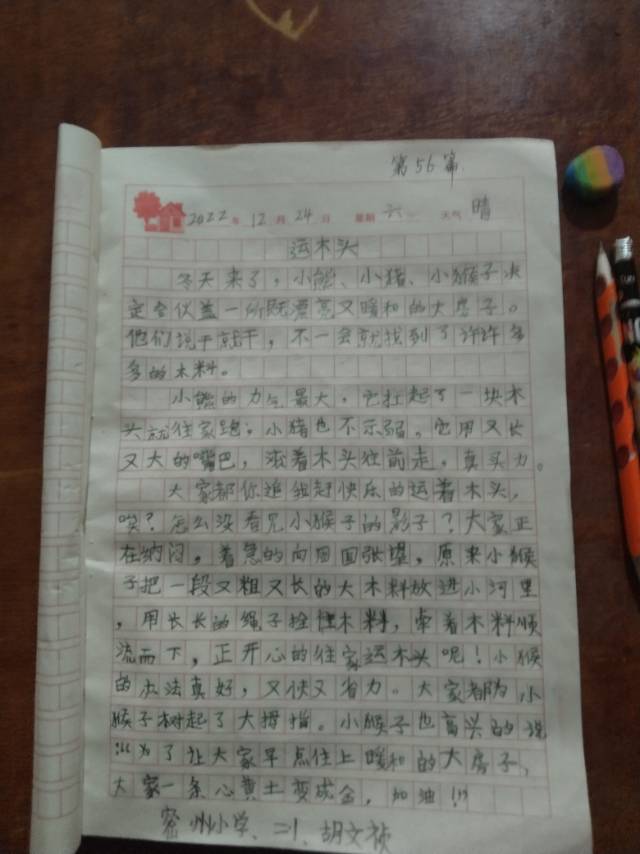 第56篇
2022年 12月 24日 星期 六 天气 晴
运木头
冬天来了，小熊、小猪、小猴子决
定合伙盖一所既漂亮又暖和的大房子。
他们说干就干，不一会就找到了许许多
多的木料。
小熊的力气最大，它扛起了一块木
头就往家跑。小猪也不示弱。它用又长
又大的嘴巴，滚着木头往前走，真卖力。
大家都你追我赶快乐的运着木头，
咦？怎么没看见小猴子的影子？大家正
在纳闷，着急的向四面张望，原来小猴
子把一段又粗又长的大木料放进小河里
，用长长的绳子拴住木料，牵着木料顺
流而下，正开心的往家运木头呢！小猴
的办法真好，又快又省力。大家都为小
猴子树起了大拇指。小猴子也高兴的说
：“为了让大家早点住上暖和的大房子，
大家一条心黄土变成金，加油！”
密州小学、二1、胡文祯